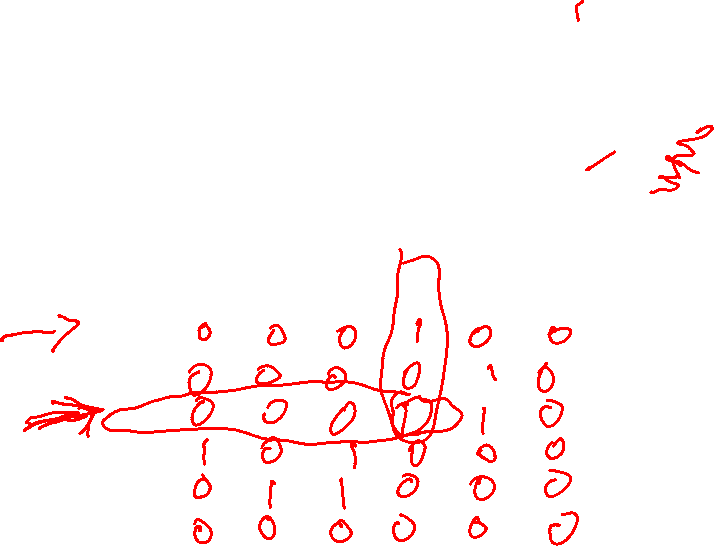 0 0 0 1 0 0
0 0 0 0 1 0
0 0 0 1 1 0
1 0 1 0 0 0
0 1 1 0 0 0
0 0 0 0 0 0